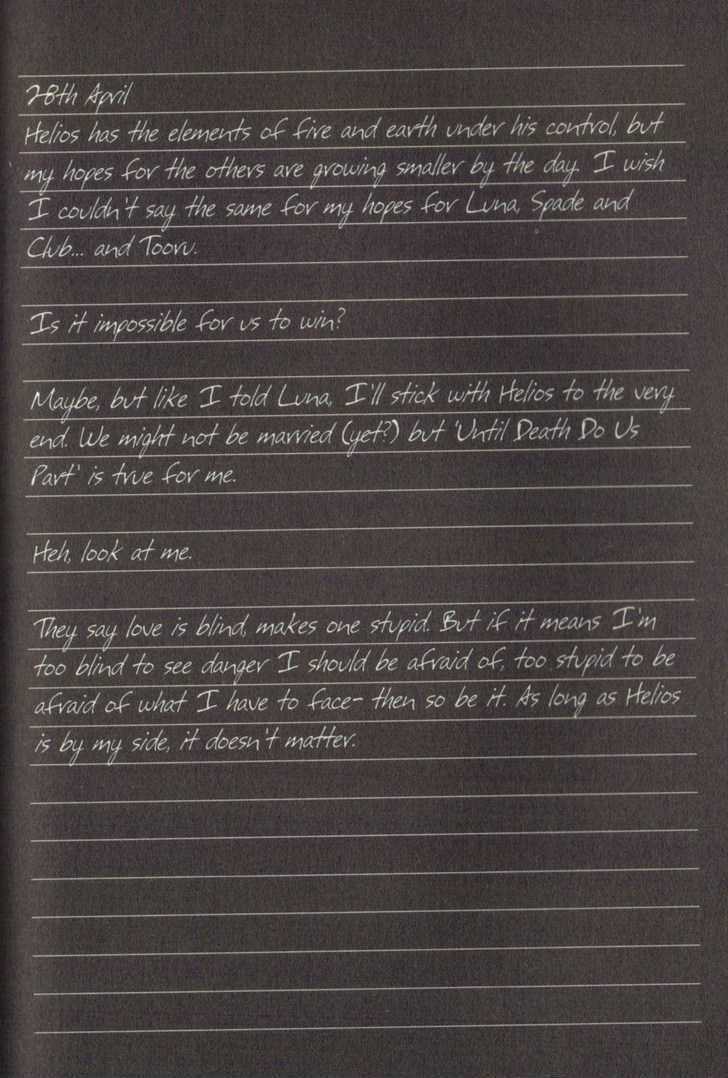 28th April
Helios has the elements of fire and earth under his control, but
my hopes for the others are growing smaller by the day. I wish
I couldn't say the same for my hopes for Luna, Spade and
Club... and Tooru.
Is it impossible for us to win?
Maybe, but like I told Luna, I'll stick with Helios to the very
end. We might not be married (yet?) but 'Until Death Do Us
Part' is true for me.
Heh, look at me.
They say love is blind, makes one stupid. But if it means I'm
too blind to see danger I should be afraid of, too stupid to be
afraid of what I have to face- then so be it. As long as Helios
is by my side, it doesn't matter.